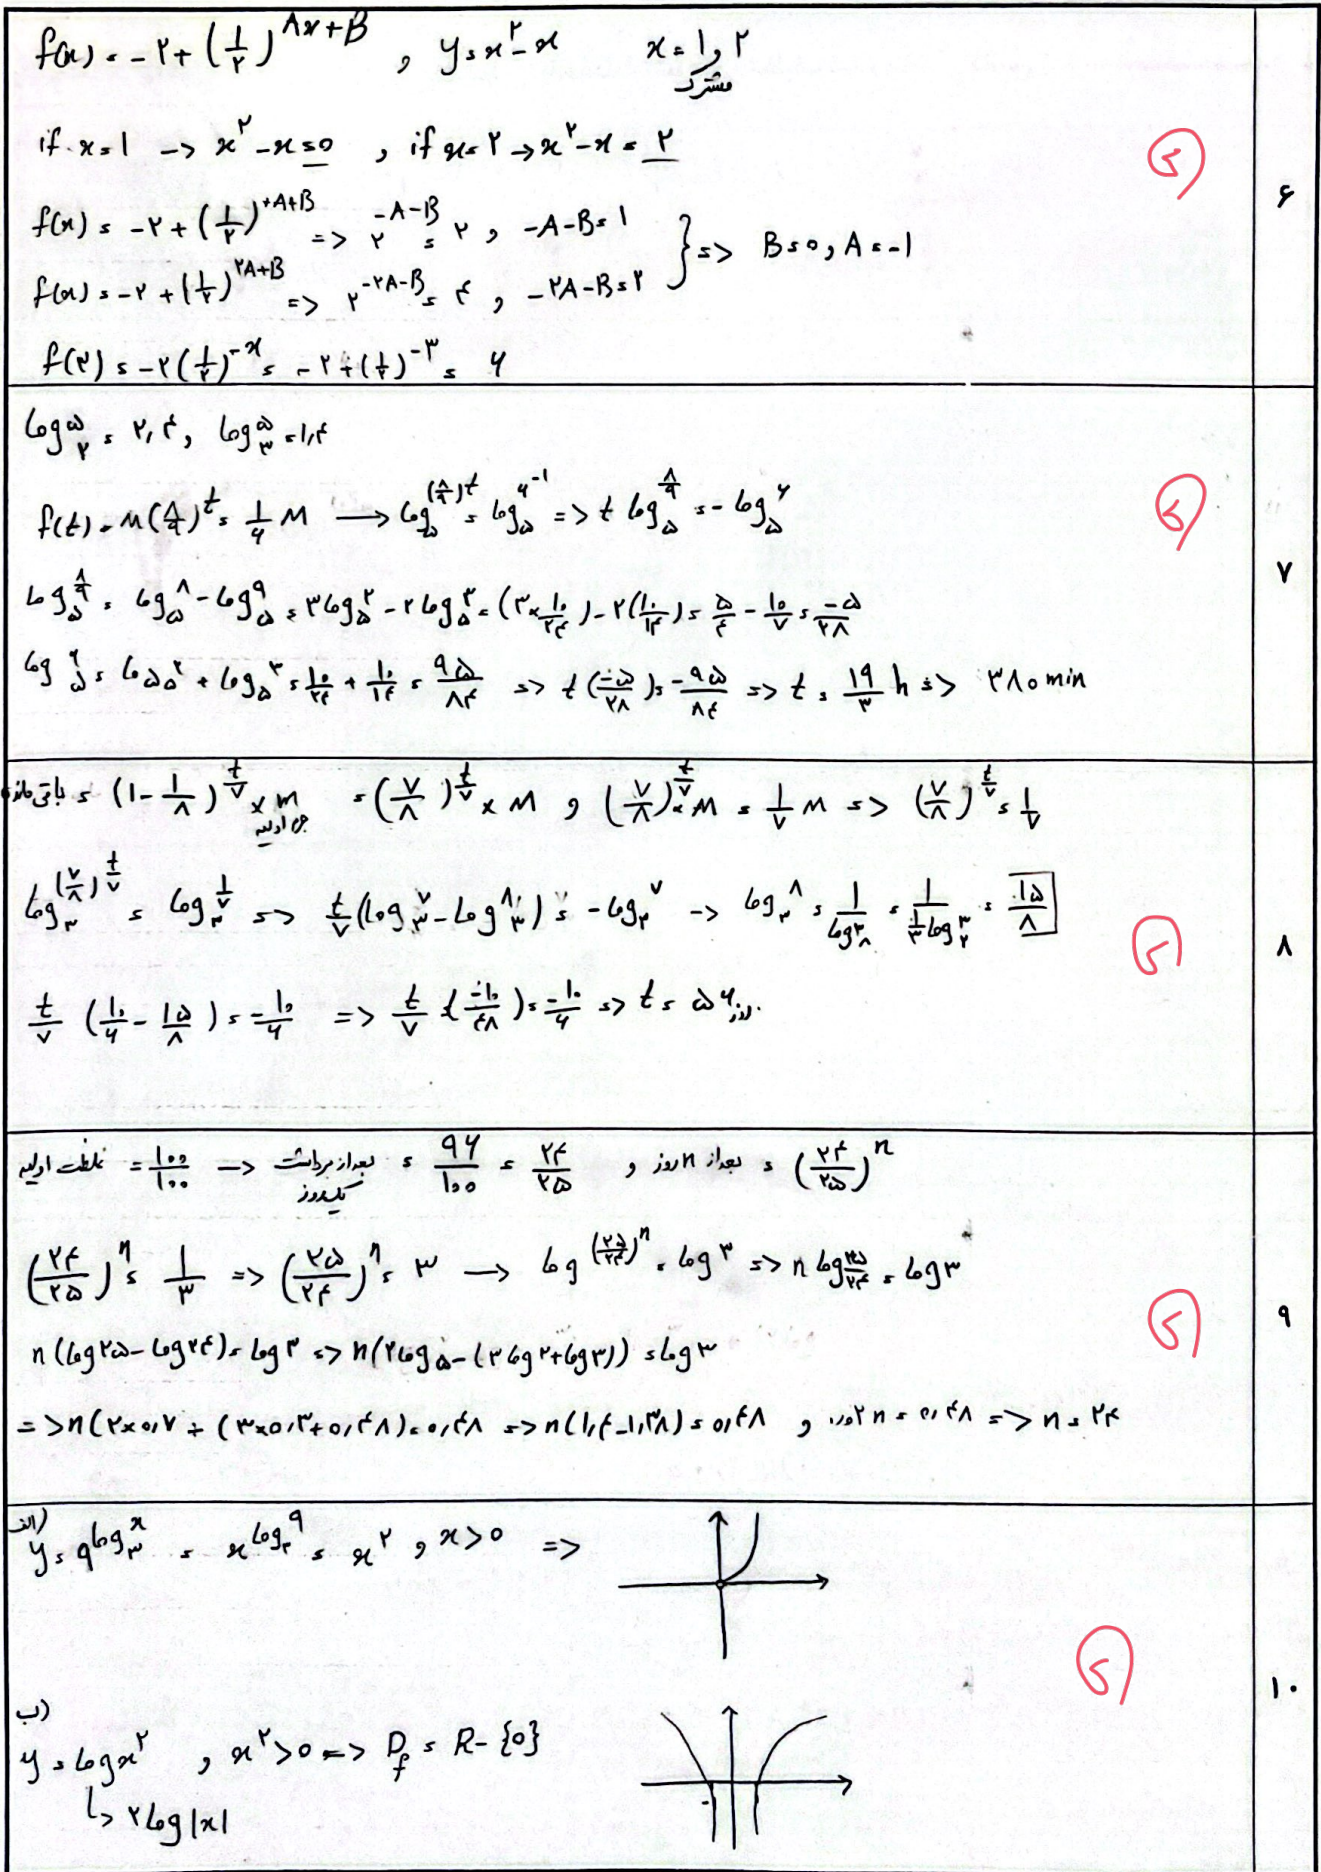 f(x) = -۲ + (۱/۲)^{Ax+B} , y = x^۲ - x x = ۱ و ۲
مشترک
if x = ۱ -> x^۲ - x = ۰ , if x = ۲ -> x^۲ - x = ۲
۶
f(x) = -۲ + (۱/۲)^{+A+B} => ۲^{-A-B} = ۲ , -A-B = ۱
f(x) = -۲ + (۱/۲)^{۲A+B} => ۲^{-۲A-B} = ۴ , -۲A-B = ۲ } => B = ۰ , A = -۱
f(۳) = -۲(۱/۲)^{-x} = -۲ + (۱/۲)^{-۳} = ۶
log_۲^۵ = ۲,۴ , log_۳^۵ = ۱,۴
f(t) = M(۸/۹)^t = ۱/۶ M -> log_۵^{(۸/۹)^t} = log_۵^{۶^{-۱}} => t log_۵^{۸/۹} = - log_۵^۶
۷
log_۵^{۸/۹} = log_۵^۸ - log_۵^۹ = ۳log_۵^۲ - ۲log_۵^۳ = (۳×۱۰/۲۴) - ۲(۱۰/۱۴) = ۵/۴ - ۱۰/۷ = -۵/۲۸
log_۵^۶ = log_۵^۲ + log_۵^۳ = ۱۰/۲۴ + ۱۰/۱۴ = ۹۵/۸۴ => t(-۵/۲۸) = -۹۵/۸۴ => t = ۱۹/۳ h => ۳۸۰ min
باقی مانده = (۱ - ۱/۸)^{t/۷} × m = (۷/۸)^{t/۷} × M , (۷/۸)^{t/۷} × M = ۱/۷ M => (۷/۸)^{t/۷} = ۱/۷
جرم اولیه
log_۳^{(۷/۸)^{t/۷}} = log_۳^{۱/۷} => t/۷ (log_۳^۷ - log_۳^۸) = - log_۳^۷ -> log_۳^۸ = ۱/log_۸^۳ = ۱/(۱/۳ log_۲^۳) = ۱۵/۸
۸
t/۷ (۱۰/۶ - ۱۵/۸) = -۱۰/۶ => t/۷ (-۱۰/۴۸) = -۱۰/۶ => t = ۵۶ روز
غلظت اولیه = ۱۰۰/۱۰۰ -> بعد از برداشت = ۹۶/۱۰۰ = ۲۴/۲۵ , بعد از n روز = (۲۴/۲۵)^n
یک روز
(۲۴/۲۵)^n = ۱/۳ => (۲۵/۲۴)^n = ۳ -> log^{(۲۵/۲۴)^n} = log ۳ => n log ۲۵/۲۴ = log ۳
۹
n(log ۲۵ - log ۲۴) = log ۳ => n(۲log ۵ - (۳log ۲ + log ۳)) = log ۳
=> n(۲×۰,۷ + (۳×۰,۳+۰,۴۸) = ۰,۴۸ => n(۱,۴-۱,۳۸) = ۰,۴۸ , ۰,۰۲n = ۰,۴۸ => n = ۲۴
الف)
y = ۹^{log_۳^x} = x^{log_۳^۹} = x^۲ , x > ۰ =>
۱۰
ب)
y = log x^۲ , x^۲ > ۰ => D_f = R - {۰}
↳ ۲log |x|